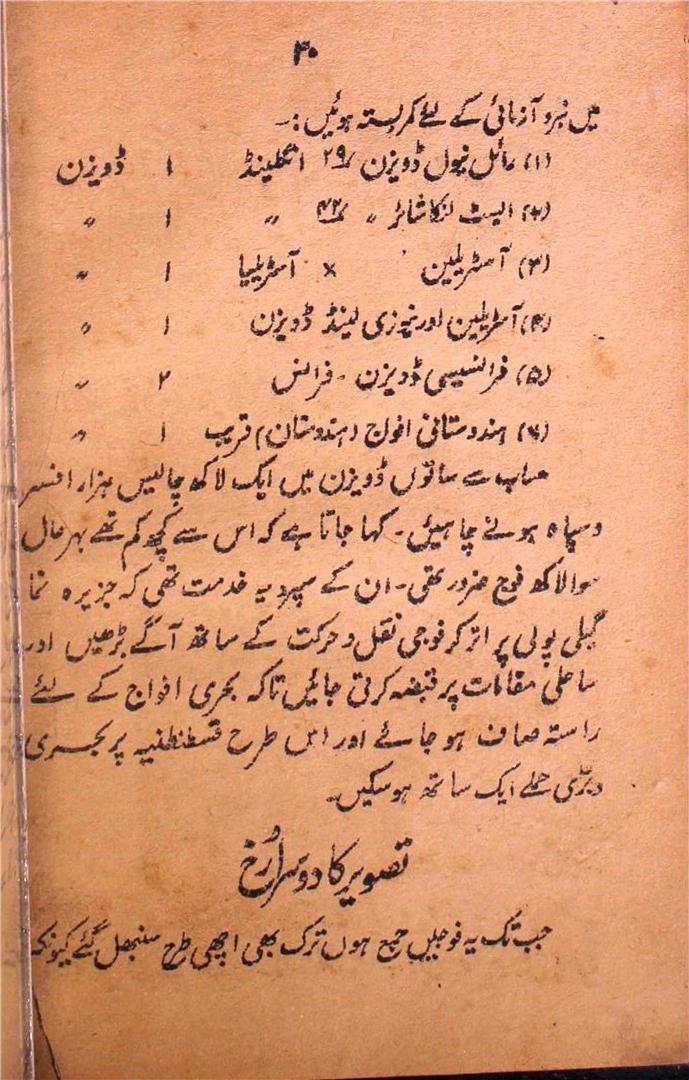 ۴۰
میں نبرد آزمائی کے لئے کمر بستہ ہوئیں :۔
(۱) رائل نیول ڈویزن /۲۹ انگلینڈ ۱ ڈویزن
(۲) ایسٹ لنکا شائر ״ /۴۲ ״ ۱ ״
(۳) آسٹریلین × آسٹریلیا ۱ ״
(۴) آسٹریلین اور نیوزی لینڈ ڈویزن ۱ ״
(۵) فرانسیسی ڈویزن ۔ فرانس ۲ ״
(۶) ہندوستانی افواج (ہندوستان) قریب ۱ ״
حساب سے ساتوں ڈویزن میں ایک لاکھ چالیس ہزار افسر
و سپاہ ہونے چاہیئں ۔ کہا جاتا ہے کہ اس سے کچھ کم تھے بہر حال
سوا لاکھ فوج ضرور تھی ۔ ان کے سپرد یہ خدمت تھی کہ جزیرہ نما
گیلی پولی پر اتر کر فوجی نقل و حرکت کے ساتھ آگے بڑھیں اور
ساحلی مقامات پر قبضہ کرتی جائیں تاکہ بحری افواج کے لئے
راستہ صاف ہو جائے اور اس طرح قسطنطنیہ پر بحری
و برّی حملے ایک ساتھ ہو سکیں ۔
تصویر کا دوسرا رُخ
جب تک یہ فوجیں جمع ہوں ترک بھی اچھی طرح سنبھل گئے کیونکہ